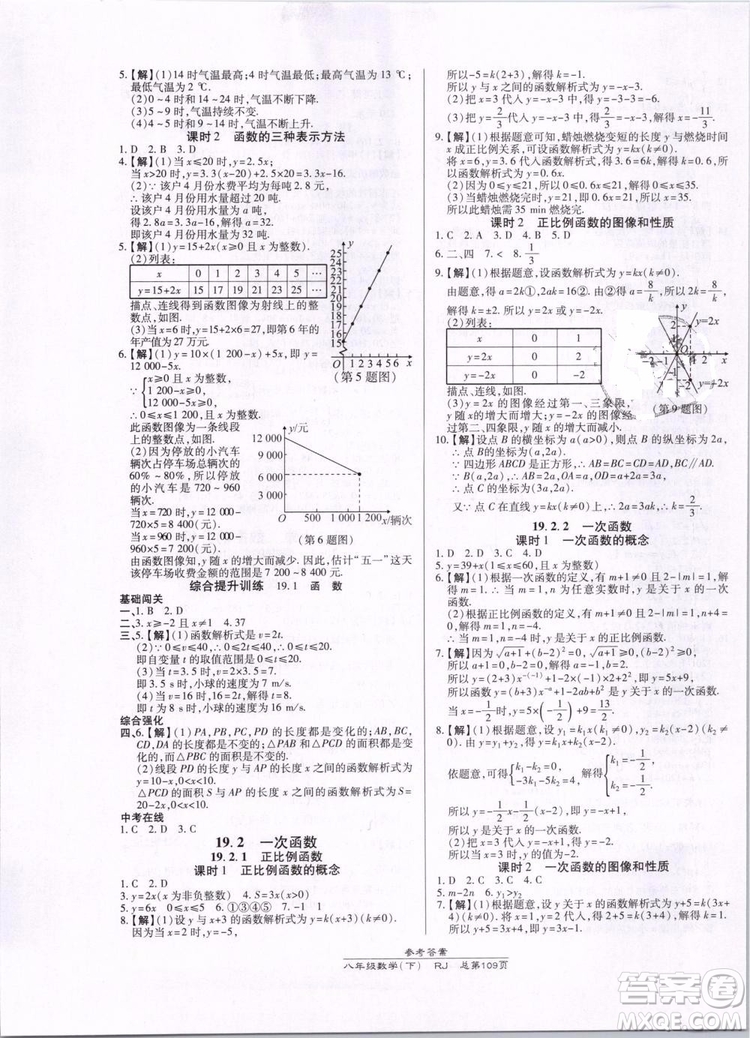 5.【解】(1)14时气温最高;4时气温最低;最高气温为13 ℃;
最低气温为2 ℃.
(2)0~4时,气温不断下降.
(3)5~9时,气温持续不变.
(4)4~14时,气温不断上升.
课时2 函数的三种表示方法
1.D 2.B 3.D
4.【解】(1)当x≤20时,y=2.5x;
当x>20时,y=3.3x-16.
(2)∵该户4月份水费平均为每吨2.8元,
∴该户4月份用水量超过20吨.
设该户4月份用水量为a吨,
得2.8a=3.3a-16,解得a=32.
答:该户4月份用水32吨.
5.【解】(1)y=15+2x(x≥0且x为整数).
(2)列表:
x 0 1 2 3 4 5 …
y=15+2x 15 17 19 21 23 25 …
描点、连线得到函数图像为射线上的整
数点,如图.
(3)当x=6时,y=15+2×6=27,即第6年的
年产值为27万元.
(第5题图)
6.【解】(1)y=10×(1 200-x)+5x,即y=-5x+
12 000.
∵{x≥0且x为整数,
1 200-x≥0且x为整数,
∴0≤x≤1 200,且x为整数.
此函数图像为一条线段
上的整数点,如图.
(2)因为停放的小汽车
辆次占停车场总辆次的
60%~80%,所以停放
的小汽车辆次在720~
960之间.
当x=720时,y=12 000-
5×720=8 400(元).
当x=960时,y=12 000-
5×960=7 200(元).
y/元
12 000
9 000
6 000
3 000
O 500 1 000 1 200 x/辆次
(第6题图)
由函数图像知,y随x的增大而减少.因此,估计“五一”这天
该停车场收费金额的范围为7 200~8 400元.
综合提升训练 19.1 函 数
基础闯关
一、1.B 2.D
二、3.x≥-2且x≠1 4.37
三、5.【解】(1)函数解析式是v=2t.
(2)∵0≤v≤40,∴0≤2t≤40,∴0≤t≤20.
即自变量t的取值范围是0≤t≤20.
(3)当t=3.5时,v=2×3.5=7.
即3.5 s时,小球的速度为7 m/s.
(4)当v=16时,16=2t,t=8.
即t为8 s时,小球的速度为16 m/s.
综合强化
四、6.【解】(1)PA,PB,PC,PD的长度都是变化的;AB,BC,
CD,DA的长度都是不变的;△PAB和△PCD的面积都是变
化的,而△PBC的面积是不变的.
(2)线段PD的长度y与AP的长度x之间的函数解析式为
y=10-x,0<x<10.
△PCD的面积S与AP的长度x之间的函数解析式为S=
20-2x,0<x<10.
中考在线
1.C 2.D 3.C
19.2 一次函数
19.2.1 正比例函数
课时1 正比例函数的概念
1.C 2.D
3.y=2x(x为非负整数) 4.S=3x(x>0)
5.y=6x 0≤x≤5 6.①③④⑤ 7.-1
8.【解】(1)设y与x之间的函数解析式为y=k(x+3)(k≠0).
∵当x=2时,y=-5,
所以-5=k(2+3),解得k=-1.
所以y与x之间的函数解析式为y=-x-3.
(2)把x=3代入y=-x-3中,得y=-3-3=-6.
(3)把y=2/3代入y=-x-3中,得2/3=-x-3,解得x=-11/3
9.【解】(1)根据题意可知,蜡烛燃烧变短的长度y与燃烧时间
x成正比例函数关系,可设函数解析式为y=kx(k≠0).
将x=6,y=3.6代入函数解析式,得3.6=6k,解得k=0.6.
所以函数解析式为y=0.6x.
(2)由题意可知0≤y≤21,即0≤0.6x≤21,解得0≤x≤35,
所以此蜡烛需35 min燃烧完.
课时2 正比例函数的图像和性质
1.C 2.A 3.D 4.B 5.D
6.二、四 7.< 8.1/3
9.【解】(1)根据题意,设A(a,2a),B(a,k).
由题意,得a=2k①,2ak=16②.由②得a=8/k,所以2k=8/k,
解得k=±2.所以y=2x或y=-2x.
(2)列表:
x 0 1
y=2x 0 2
y=-2x 0 -2
描点、连线,如图.
(3)y=2x的图像经过第一、三象限,
y随x的增大而增大;y=-2x的图像经
过第二、四象限,y随x的增大而减小.
(第9题图)
10.【解】设点B的横坐标为a(a>0),则点B的纵坐标为2a,
∴点B的坐标为B(a,2a).
∵四边形ABCD是正方形,∴AB=BC=CD=AD=2a.
∵B(a,2a),∴OA=a,∴OD=OA+AD=a+2a=3a,
∴点C的坐标为C(3a,2a).
又∵点C(3a,2a)在直线y=kx上,∴2a=k·3a,∴k=2/3.
19.2.2 一次函数
课时1 一次函数的概念
1.D 2.D 3.C 4.D
5.y=39+x(1≤x≤60,且x为整数)
6.【解】(1)根据一次函数的定义,有m+1≠0且2-|m|=1,解
得m=1,∴当m=1,n为任意实数时,这个函数是一次
函数.
(2)根据正比例函数的定义,有m+1≠0且2-|m|=1,n+4=
0,解得m=1,n=-4.∴当m=1,n=-4时,y是关于x的正比
例函数.
7.【解】因为√(a+1)+(b-2)²=0,√(a+1)≥0,(b-2)²≥0,所以a+
1=0,b-2=0,解得a=-1,b=2.
所以y=(2+3)x^-(-1)+1-2×(-1)×2+(-1)²,即y=5x+6.
所以函数y=(b+3)x^-a+1-2ab+a²是一次函数.
当x=-1/2时,y=5x+6=5×(-1/2)+6=7/2.
8.【解】(1)设y₁=k₁x,y₂=k₂(x-2),则y=y₁+y₂=k₁x+
k₂(x-2).
依题意,可得{k₁-k₂=0,
-3k₁-5k₂=4.
解得{k₁=-1/2,
k₂=-1/2.
所以y=-1/2x-1/2(x-2),即y=-x+1.
所以y是关于x的一次函数.
(2)把x=3代入y=-x+1,得y=-2.
所以当x=3时,y的值为-2.
课时2 一次函数的图像和性质
1.B 2.A 3.C 4.C
5.m-2n 6.y₁>y₂
7.【解】(1)根据题意,得y与x之间的函数解析式为y=k(3x+
参考答案
八年级数学(下) RJ 总第109页
答案圈
MXQE.COM